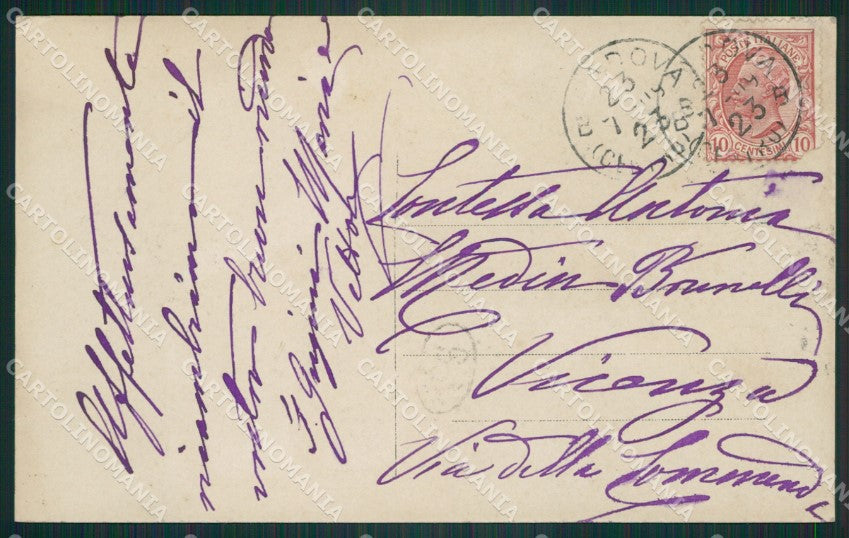 Affettuosamente
ricambiamo il
vostro buon ricordo
Maria e
Contessa Antonia
Medin Brunelli
Vicenza
Via della Commenda
POSTE ITALIANE
10 CENTESIMI 10
CARTOLINOMANIA